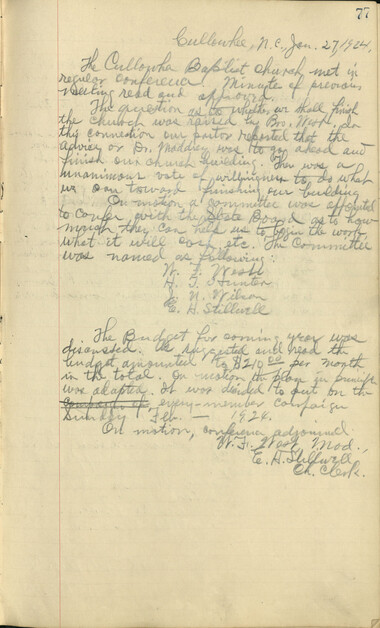 77
Cullowhee, N.C., Jan. 27, 1924,
The Cullowhee Baptist church met in
regular conference. Minutes of previous
meeting read and approved.
The question as to whether we shall finish
the church was raised by Bro. West. In
this connection our pastor reported that the
advice of Dr. Maddrey was to go ahead and
finish our church building. There was a
unanimous vote of willingness to do what
we can toward finishing our building.
On motion a committee was appointed
to confer with the State Board as to how
much they can help us to begin the work
what it will cost, etc. The Committee
was named as following:
W. F. West
H. T. Hunter
J. N. Wilson
E. H. Stillwell
The Budget for coming year was
discussed. As suggested and read the
budget amounted to $210.00 per month
in the total. On motion the plan in principle
was adopted. It was decided to put on the
campaign of every-member campaign
Sunday Feb. — 1924.
On motion, conference adjourned.
W. F. West, Mod.,
E. H. Stillwell,
Ch. Clerk.